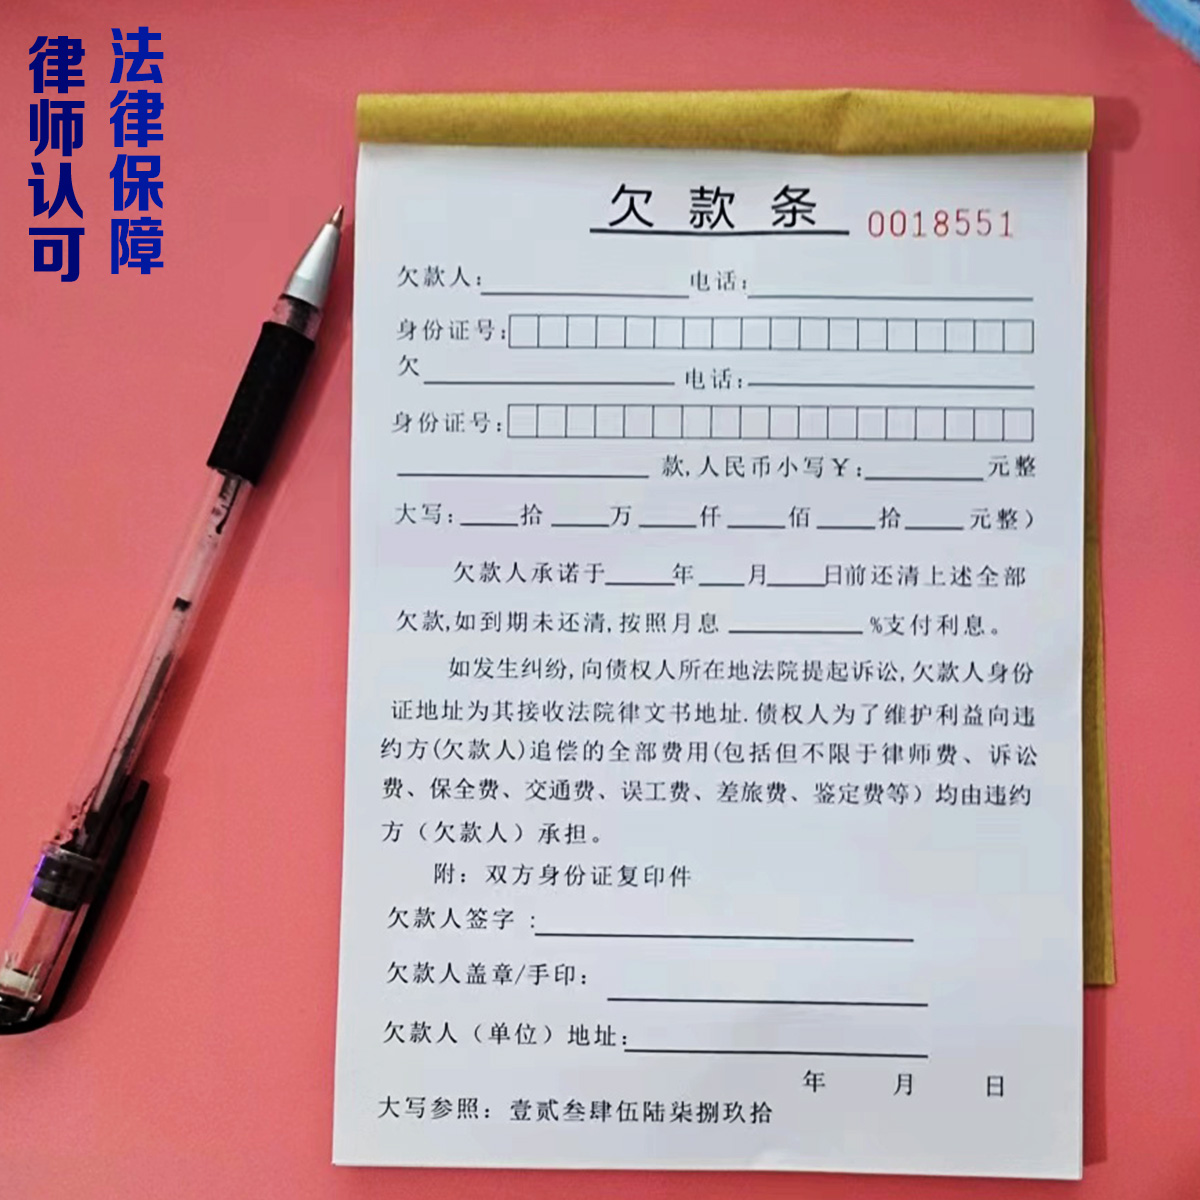 法律保障
律师认可
欠款条 0018551
欠款人: 电话:
身份证号:
欠 电话:
身份证号:
款,人民币小写¥: 元整
大写: 拾 万 仟 佰 拾 元整)
欠款人承诺于 年 月 日前还清上述全部
欠款,如到期未还清,按照月息 %支付利息。
如发生纠纷,向债权人所在地法院提起诉讼,欠款人身份
证地址为其接收法院律文书地址.债权人为了维护利益向违
约方(欠款人)追偿的全部费用(包括但不限于律师费、诉讼
费、保全费、交通费、误工费、差旅费、鉴定费等）均由违约
方（欠款人）承担。
附：双方身份证复印件
欠款人签字 :
欠款人盖章/手印:
欠款人（单位）地址:
年 月 日
大写参照：壹贰叁肆伍陆柒捌玖拾